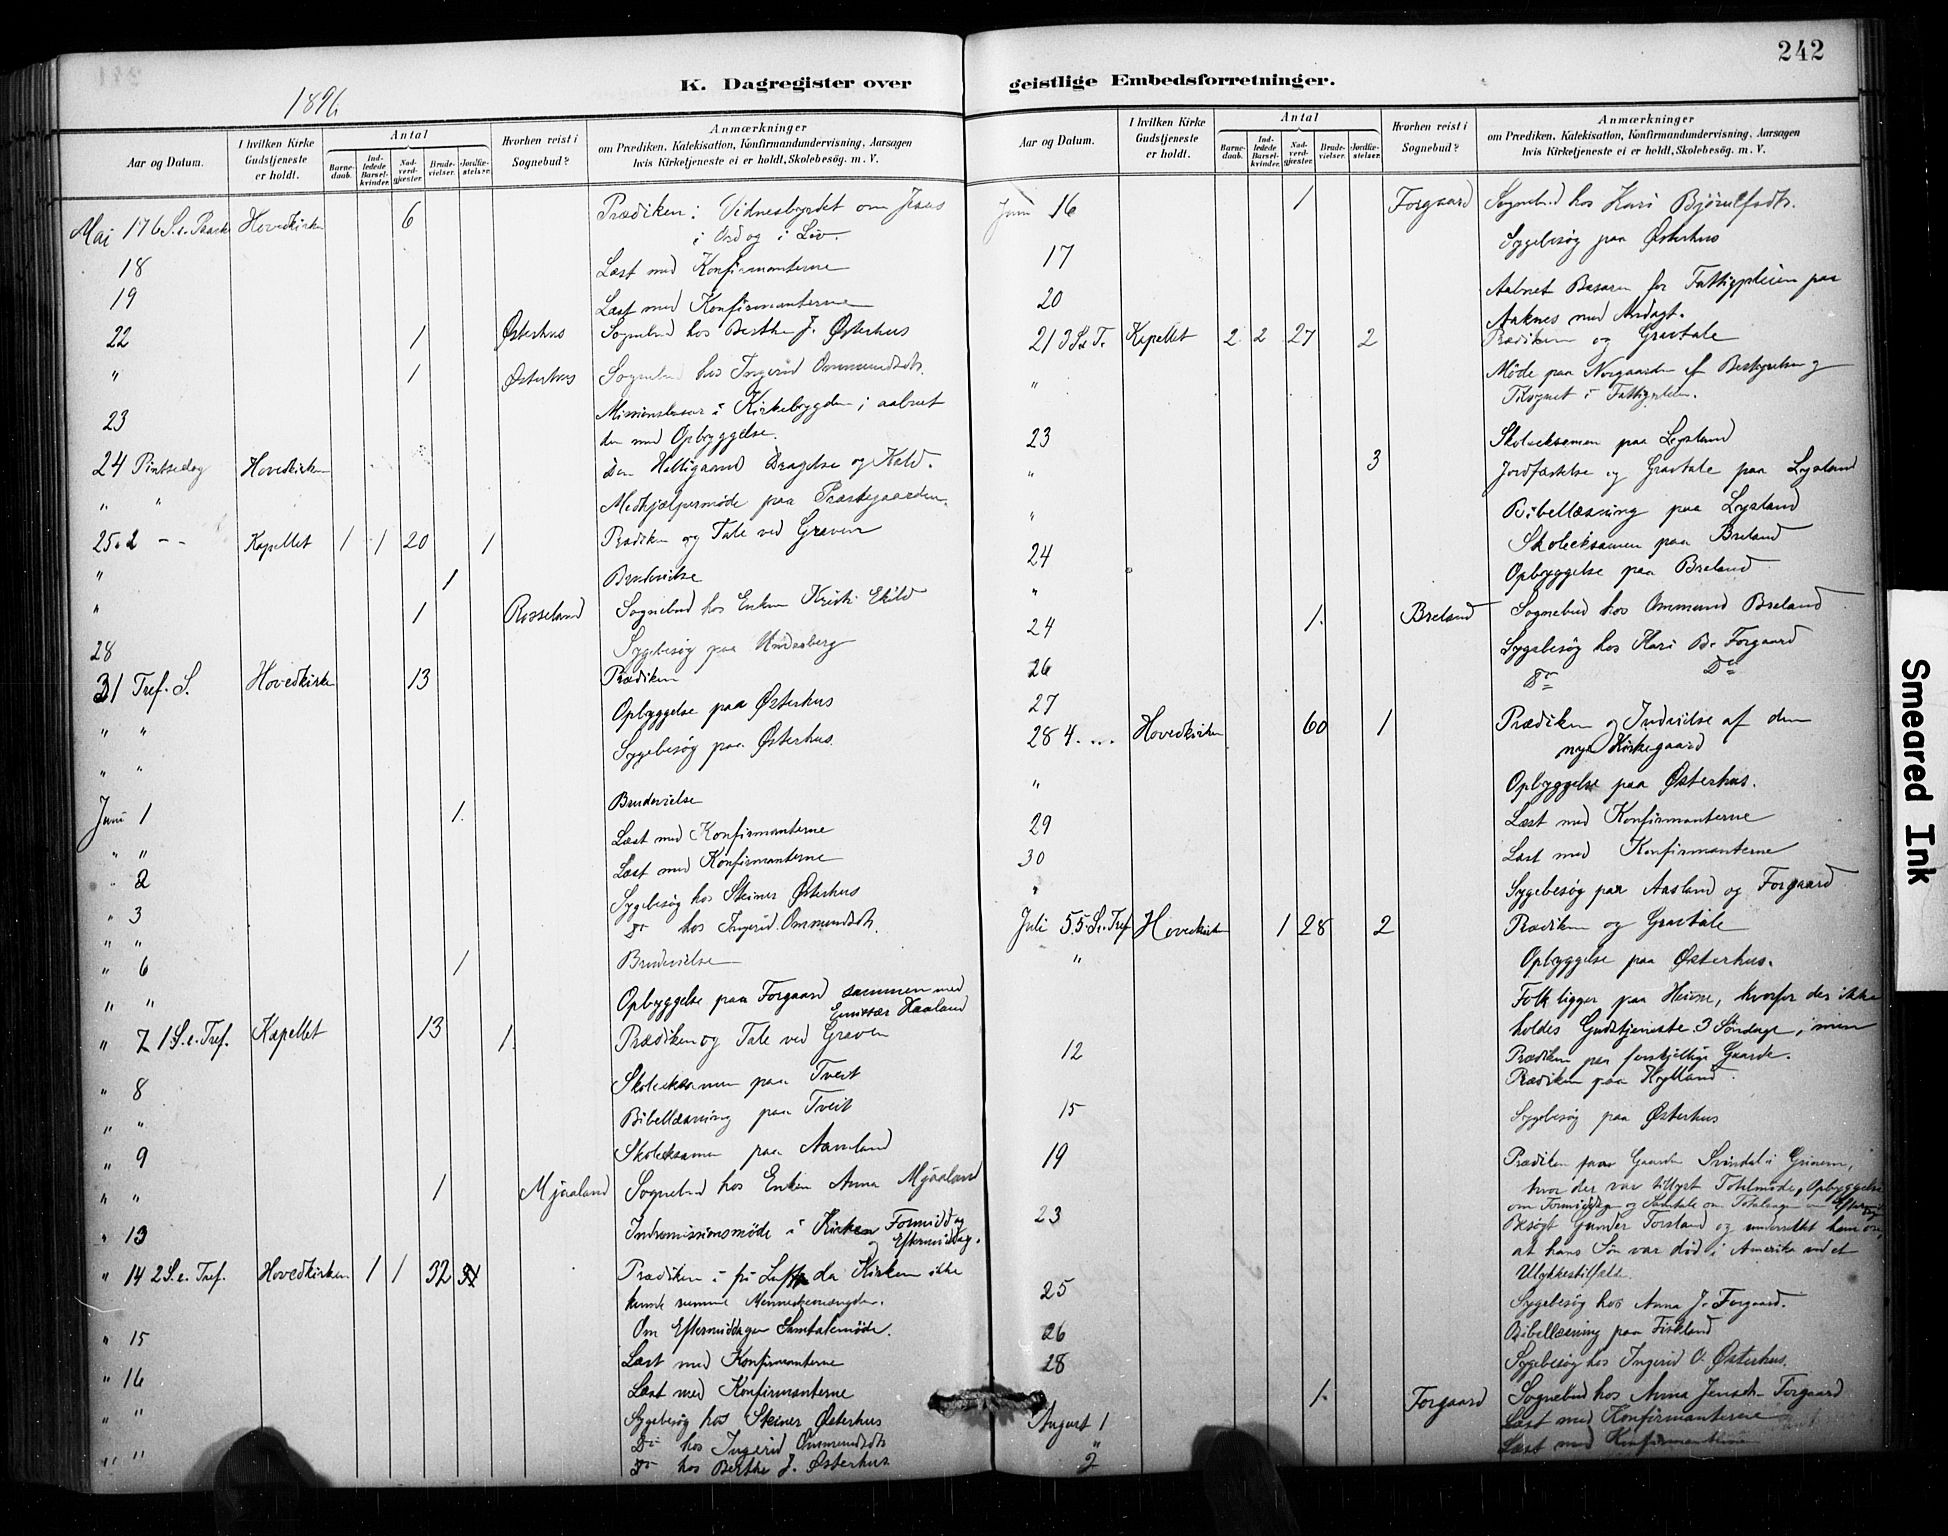 242
K. Dagregister over geistlige Embedsforretninger.
1896
Aar og Datum.
I hvilken Kirke Gudstjeneste er holdt.
Antal
Barnedaab.
Indledede Barselkvinder.
Nadverdgjester.
Brudevielser.
Jordfæstelser.
Hvorhen reist i Sognebud?
Anmærkninger
om Prædiken, Katekisation, Konfirmandundervisning, Aarsagen
hvis Kirketjeneste ei er holdt, Skolebesøg. m. V.
Mai 17 6 S. e. Paaske Hovedkirken 6 Prædiken: Vidnesbyrdet om Jesus
i Ord og i Liv.
18 Læst med Konfirmanterne
19 Læst med Konfirmanterne
22 1 Østerhus Sognebud hos Berthe J. Østerhus
" 1 Østerhus Sognebud hos Ingerid Ommundsdt.
23 Missionsbasar i Kirkebygden; aabnet
den med Opbyggelse.
24 Pintsedag Hovedkirken Den Helligaand Dragelse og Kald.
" " Medhjælpermøde paa Præstegaarden.
25. 2 - - Kapellet 1 1 20 1 Prædiken og Tale ved Graven
" 1 Brudevielse
" 1 Rosseland Sognebud hos Enken Kristi Ekild
28 Sygebesøg paa
31 Tref. S. Hovedkirken 13 Prædiken
" " Opbyggelse paa Østerhus
" " Sygebesøg paa Østerhus.
Juni 1 1. Brudevielse
" " Læst med Konfirmanterne
" 2 Læst med Konfirmanterne
" 3 Sygebesøg hos Steiner Østerhus
" " Do hos Ingerid Ommundsdt.
" 6 1 Brudevielse
" " Opbyggelse paa Forgaard sammen med
Emissær Haaland
" 7 1. S. e. Tref. Kapellet 13 1. Prædiken og Tale ved Graven
" 8 Skoleeksamen paa Tveit
" " Bibellæsning paa Tveit
" 9 Skoleeksamen paa Aamland
" " 1 Mjaaland Sognebud hos Enken Anna Mjaaland
" 13 Indremissionsmøde i Kirken Formiddag
og Eftermiddag.
" 14 2 S. e. Tref. Hovedkirken 1 1 32 Prædiken i fri Luft da Kirken ikke
kunde rumme Menneskemængden.
Om Eftermiddagen Samtalemøde.
" 15 Læst med Konfirmanterne
" 16 Læst med Konfirmanterne
" " Sygebesøg hos Steiner Østerhus
" " Do hos Ingerid Ommundsdt
Do hos Berthe J. Østerhus
Aar og Datum.
I hvilken Kirke Gudstjeneste er holdt.
Antal
Barnedaab.
Indledede Barselkvinder.
Nadverdgjester.
Brudevielser.
Jordfæstelser.
Hvorhen reist i Sognebud?
Anmærkninger
om Prædiken, Katekisation, Konfirmandundervisning, Aarsagen
hvis Kirketjeneste ei er holdt, Skolebesøg. m. V.
Juni 16 1 Forgaard Sognebud hos Kari Bjørulfsdt.
17 Sygebesøg paa Østerhus
20 Aabnet Basaren for Fattigpleien paa
Aaknes med Andagt.
21 3 S. e. T. Kapellet 2 2 27 2 Prædiken og Gravtale
" Møde paa Norgaarden af Bestyrelsen og
Tilsynet i Fattigpleien.
23 Skoleeksamen paa Lysland
" 3 Jordfæstelse og Gravtale paa Lysland
" Bibellæsning paa Lysland
24 Skoleeksamen paa Breland
" Opbyggelse paa Breland
24 1. Breland Sognebud hos Ommund Breland
26 Sygebesøg hos Kari B. Forgaard
27 Do Do
28 4. ... Hovedkirken 60 1 Prædiken og Indvielse af den
nye Kirkegaard
" Opbyggelse paa Østerhus.
29 Læst med Konfirmanterne
30 Læst med Konfirmanterne
" Sygebesøg paa Aasland og Forgaard
Juli 5 5. S. e. Tref Hovedkirken 1 28 2 Prædiken og Gravtale
" Opbyggelse paa Østerhus.
Folk ligger paa Heiene, hvorfor der ikke
holdes Gudstjeneste 3 Søndage, men
Prædiken paa forskjellige Gaarde.
12 Prædiken paa Hylland.
15 Sygebesøg paa Østerhus
19 Prædiken paa Gaarden Svindal i
hvor der var tillyst Totalmøde, Opbyggelse
om Formiddagen og Samtale om Totalsagen om Eftermidd
23 Besøgt Gunder Torsland og underrettet ham om,
at hans Søn var død i Amerika ved et
Ulykkestilfælde.
25 Sygebesøg hos Anna J. Forgaard.
26 Bibellæsning paa Fiskland
28 Sygebesøg hos Ingerid O. Østerhus.
August 1 1. Forgaard Sognebud hos Anna Jensdt. Forgaard
" Læst med Konfirmanterne
2 Læst med Konfirmanterne
Smeared Ink